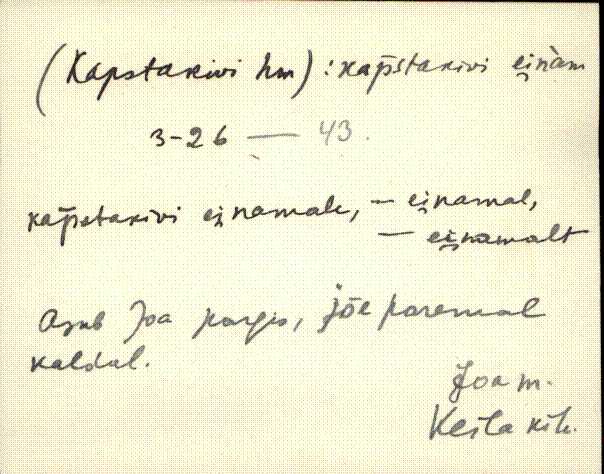 (Kapstakivi hm) : kap̄stakivi ei̯ǹam
3-26 — 43.
kap̄stakivi ei̯namale, — ei̯namal,
— ei̯namalt
Asub Joa pargis, jõe paremal
kaldal.
Joa m.
Keila kih.